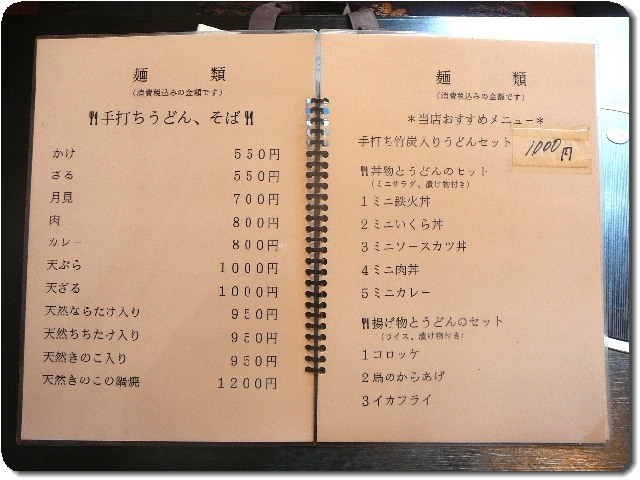 麺 類
(消費税込みの金額です)
手打ちうどん、そば
かけ 550円
ざる 550円
月見 700円
肉 800円
カレー 800円
天ぷら 1000円
天ざる 1000円
天然ならたけ入り 950円
天然ちちたけ入り 950円
天然きのこ入り 950円
天然きのこの鍋焼 1200円
麺 類
(消費税込みの金額です)
*当店おすすめメニュー*
手打ち竹炭入りうどんセット 1000円
丼物とうどんのセット
(ミニサラダ、漬け物付き)
1ミニ鉄火丼
2ミニいくら丼
3ミニソースカツ丼
4ミニ肉丼
5ミニカレー
揚げ物とうどんのセット
(ライス、漬け物付き)
1コロッケ
2鳥のからあげ
3イカフライ